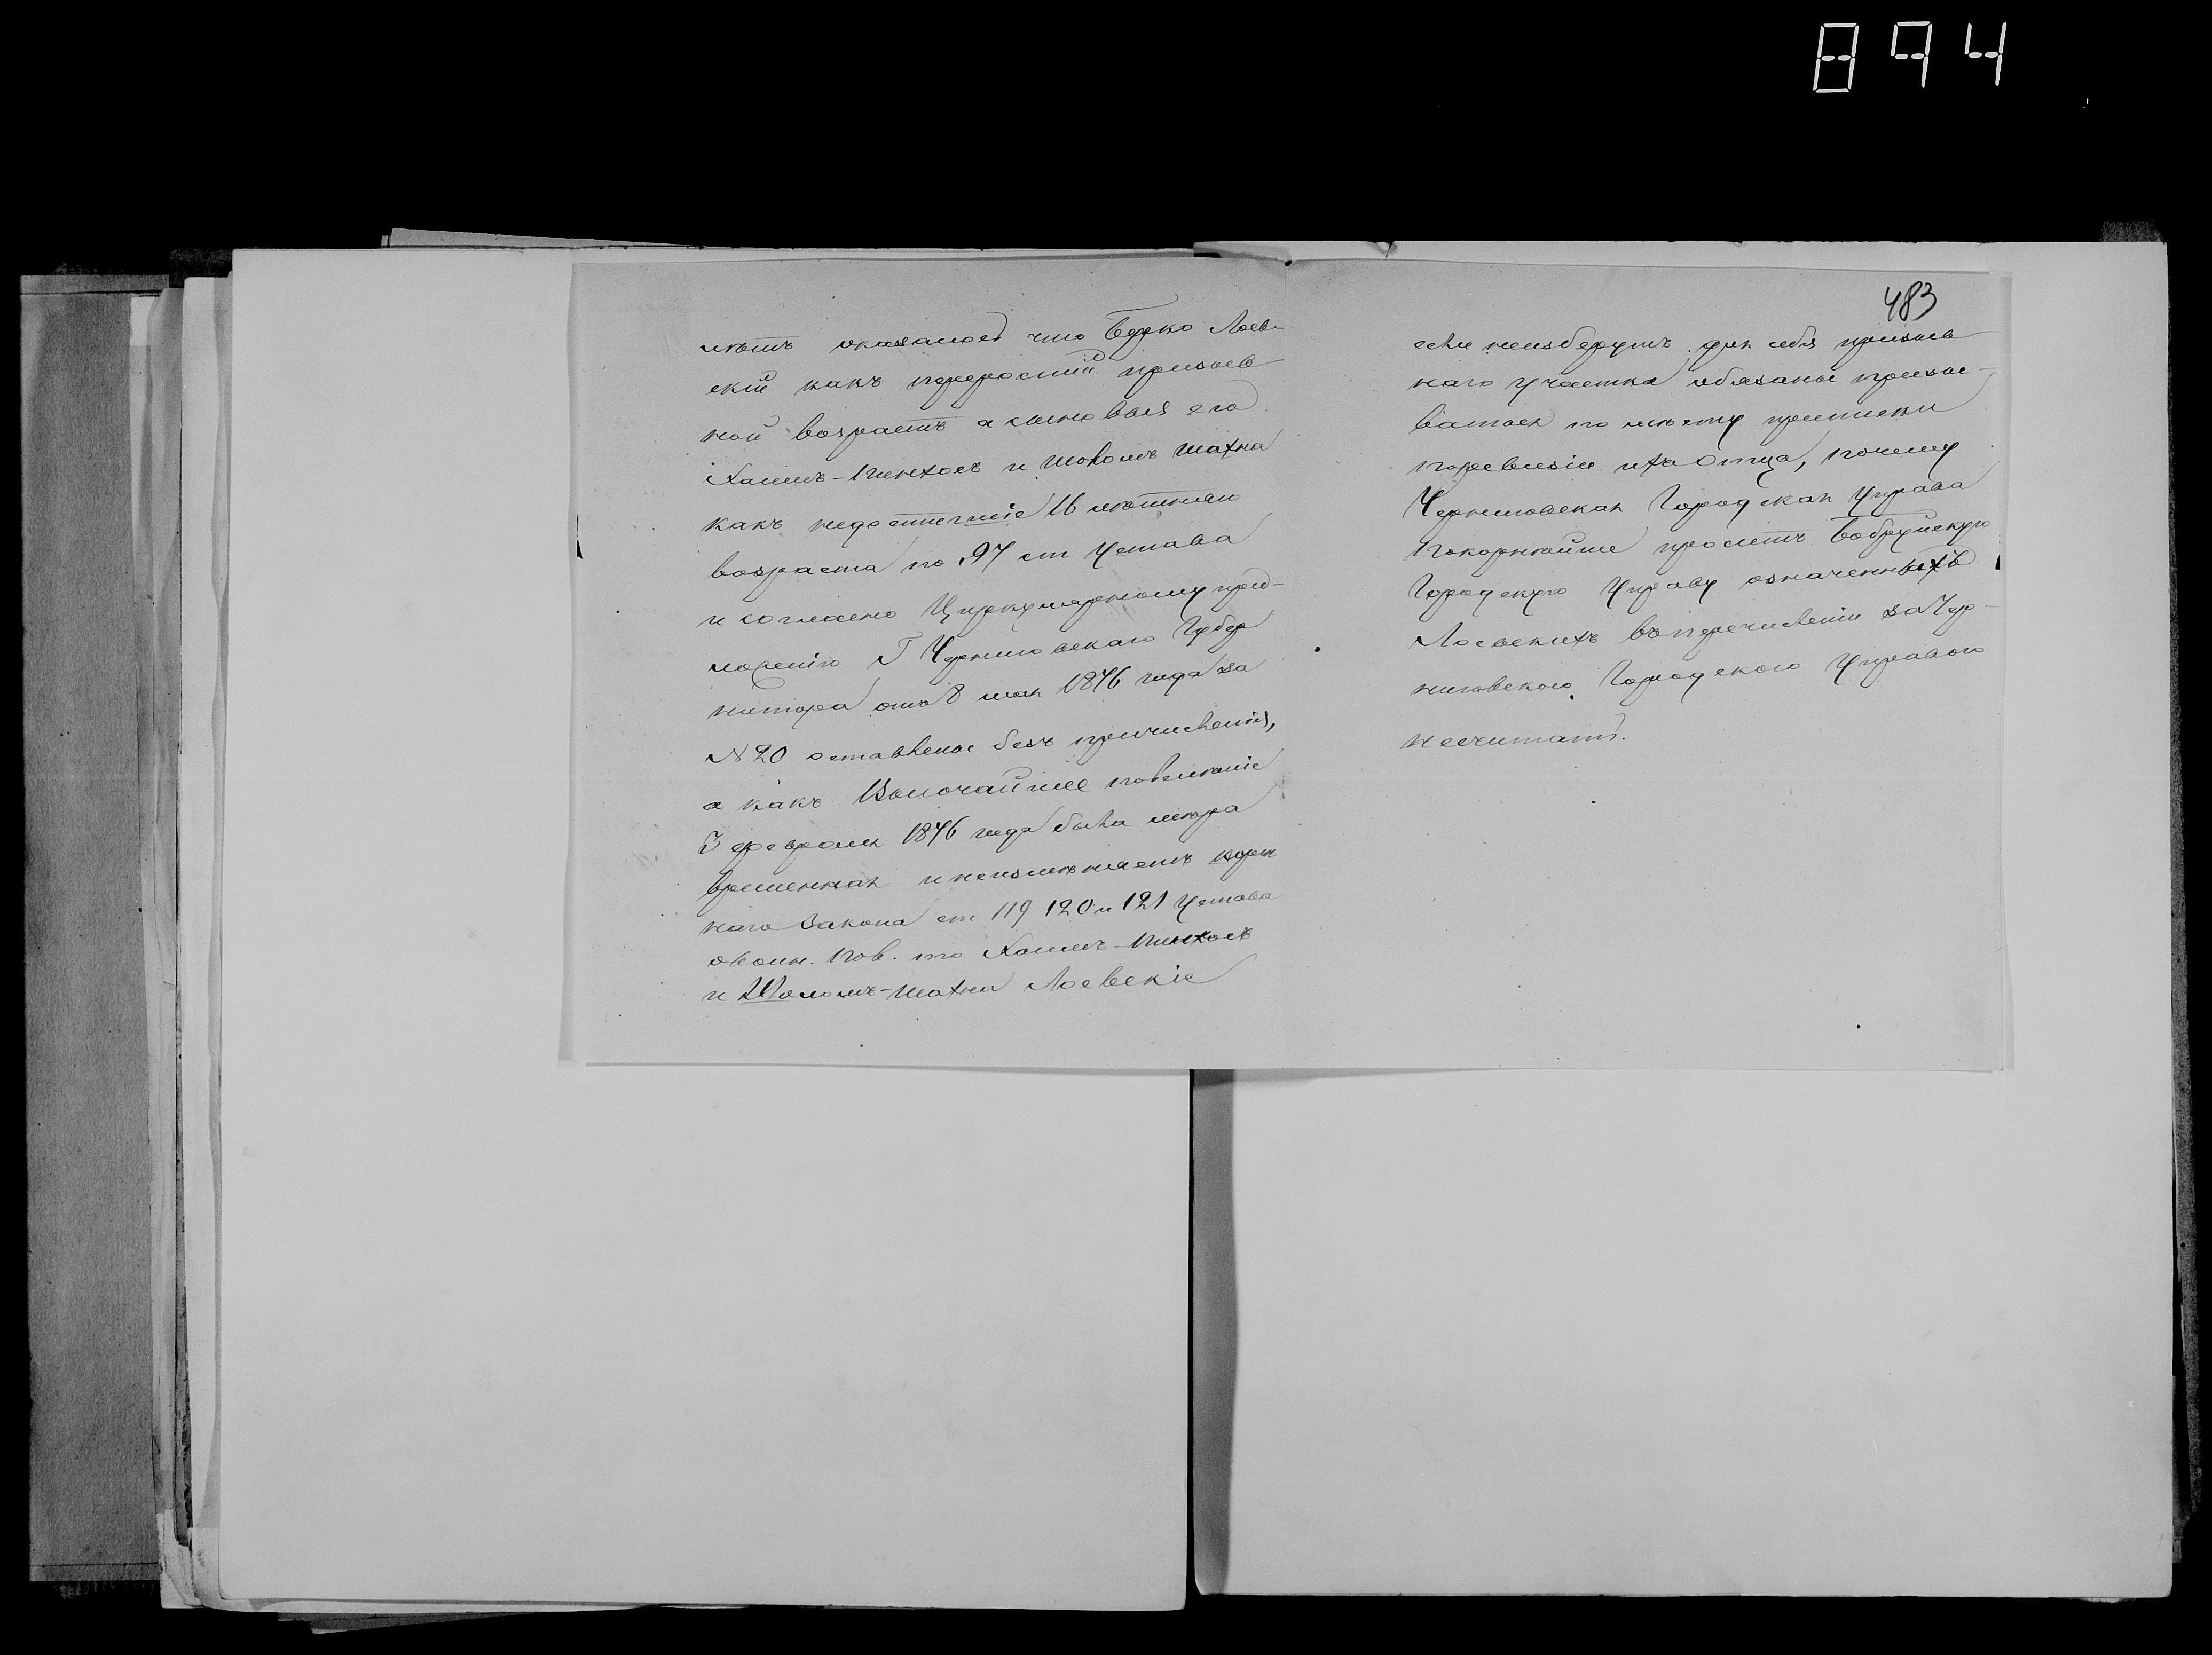 894
483
лѣтъ оказалось что Берко Лоев-
скій какъ переросшій призыв
ной возрастъ а сыновья его
Хаимъ-Пинхосъ и Шоломъ Шахна
какъ недостигшіе 16 лѣтняго
возраста по 97 ст Устава
и согласно Циркулярному пред-
ложенію Г Черниговскаго Губер
натора отъ 8 мая 1876 года за
№ 20 оставлены безъ причисленія,
а какъ Высочайшее повелѣніе
3 февраля 1876 года была мѣра
временная и неизмѣняетъ корен
наго закона ст 119 120 и 121 Устава
овоин. Пов. то Хаимъ-Пинхосъ
и Шоломъ-Шахна Лоевскіе
если неизберутъ для себя призыв
наго участка обязаны призы-
ваться по мѣсту приписки
поревизіи ихъ Отца, почему
Черниговская Городская Управа
Покорнѣйше проситъ Бобруйскую
Городскую Управу означенныхъ
Лоевскихъ въперечисленіи за Чер-
ниговскою Городскою Управою
несчитать.